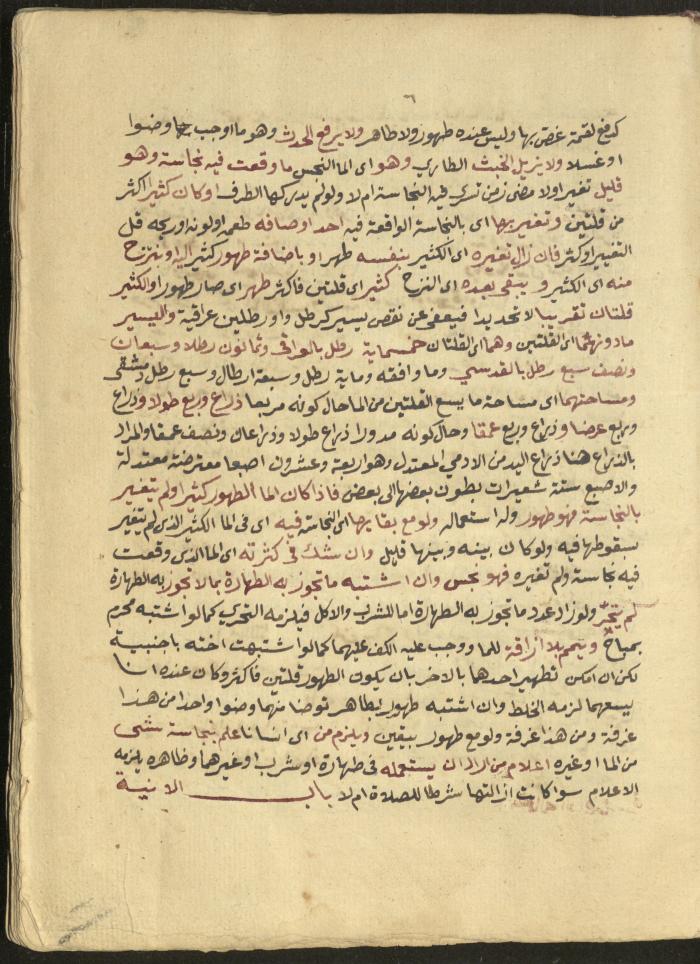 ٦
كدفع لقمة غص بها وليس عنده طهور ولا طاهر ولا يرفع الحدث وهو ما اوجب وضوا
او غسلا ولا يزيل الخبث الطاري وهو اى الما النجس ما وقعت فيه نجاسة وهو
قليل تغير اولا مضى زمن تسري فيه النجاسة ام لا ولو لم يدركها الطرف او كان كثيرا اكثر
من قلتين وتغير بها اى بالنجاسة الواقعة فيه احد اوصافه طعمه او لونه او ريحه قل
التغير او كثر فان زال تغيره اى الكثير بنفسه طهر او باضافة طهور كثير اليه او بنزح
منه اى الكثير و يبقى بعده اى النزح كثير اى قلتين فاكثر طهر اى صار طهورا والكثير
قلتان تقريبا لا تحديدا فيعفى عن نقص يسير كرطل او رطلين عراقية واليسير
ما دونهما اى القلتين وهما اى القلتان خمسماية رطل بالعراقي وثمانون رطلا وسبعان
ونصف سبع رطل بالقدسي وما وافقه وماية رطل وسبعة ارطال وسبع رطل دمشقى
ومساحتهما اى مساحة ما يسع القلتين من الما حال كونه مربعا ذراع وربع طولا وذراع
وربع عرضا وذراع وربع عمقا وحال كونه مدورا ذراع طولا وذراعان ونصف عمقا والمراد
بالذراع هنا ذراع اليد من الادمي المعتدل وهو اربعة وعشرون اصبعا معترضة معتدلة
والاصبع ستة شعيرات بطون بعضها الى بعض فاذا كان الما الطهور كثير ولم يتغير
بالنجاسة فهو طهور وله استعماله ولو مع بقايها اى النجاسة فيه اى فى الما الكثير الذى لم يتغير
بسقوطها فيه ولو كان بينه وبينها قليل وان شك فى كثرته اى الما الذى وقعت
فيه نجاسة ولم تغيره فهو نجس وان اشتبه ما تجوز به الطهارة بما لا تجوز به الطهارة
لم يتحر ولو زاد عدد ما تجوز به الطهارة اما للشرب والاكل فيلزمه التحري كما لو اشتبه محرم
بمباح ويتيمم بلا اراقة للما ووجب عليه الكف عليهما كما لو اشتبهت اخته باجنبية
لكن ان امكن تطهير احدهما بالاخر بان يكون الطهور قلتين فاكثر وكان عنده انا
يسعهما لزمه الخلط وان اشتبه طهور بطاهر توضا منهما وضوا واحدا من هذا
غرفة ومن هذا غرفة ولو مع طهور بيقين ويلزم من اى انسانا علم بنجاسة شى
من الما او غيره اعلام من اراد ان يستعمله فى طهارة او شرب او غيرهما وظاهره يلزمه
الاعلام سوا كانت ازالتها شرطا للصلاة ام لا باب الانية